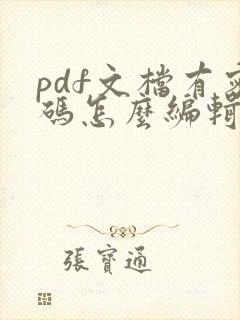 pdf文檔有密
碼怎麼編輯
張寶通